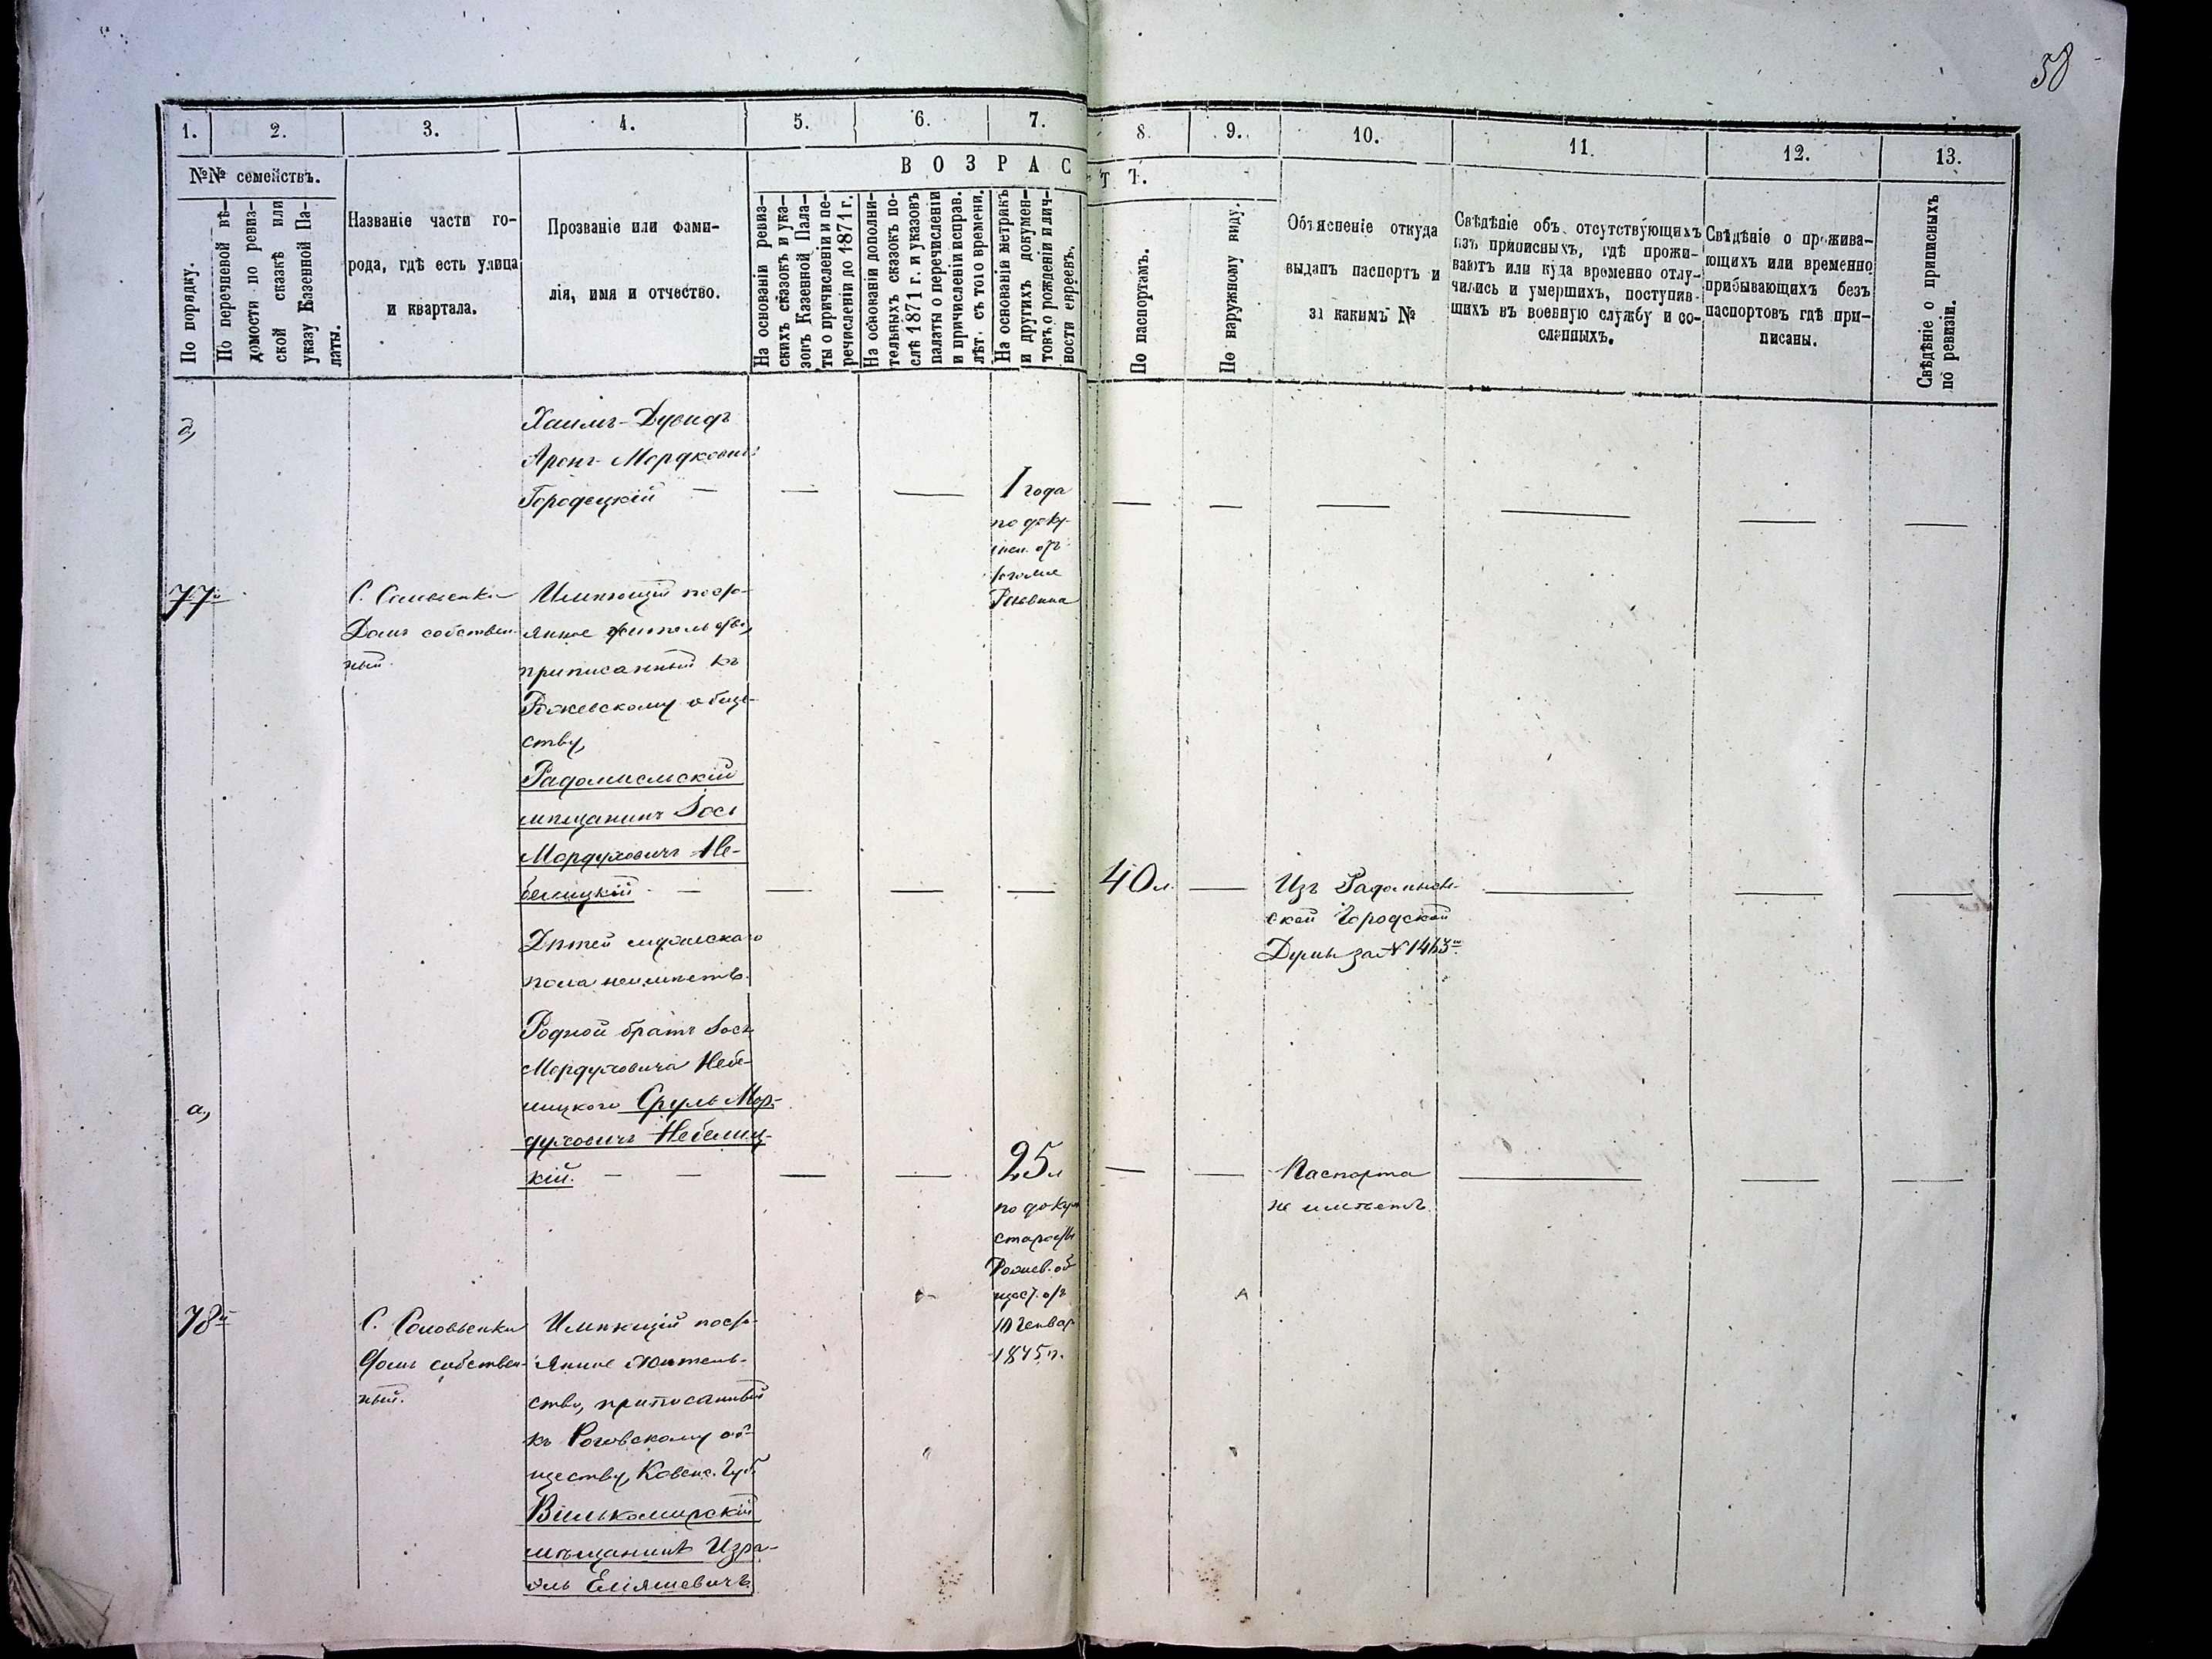 58
1.
2.
3.
4.
5.
6.
7.
8.
9.
10.
11.
12.
13.
№№ семействъ.
По порядку.
По перечневой вѣ-
домости по ревиз-
ской сказкѣ или
указу Казенной Па-
латы.
Названіе части го-
рода, гдѣ есть улица
и квартала.
Прозваніе или фами-
лія, имя и отчество.
ВОЗРАС
ТТ.
На основаніи ревиз-
скихъ сказокъ и ука-
зовъ Казенной Пала-
ты о причисленіи и пе-
речисленіи до 1871 г.
На основаніи дополни-
тельныхъ сказокъ по-
слѣ 1871 г. и указовъ
палаты о перечисленіи
и причисленіи исправ.
лѣт. съ того времени.
На основаніи метрикъ
и другихъ докумен-
товъ о рожденіи и лич-
ности евреевъ.
По паспортамъ.
По наружному виду.
Объясненіе откуда
выданъ паспортъ и
за какимъ №
Свѣдѣніе объ отсутствующихъ
изъ приписныхъ, гдѣ прожи-
ваютъ или куда временно отлу-
чились и умершихъ, поступив-
шихъ въ военную службу и со-
сланныхъ.
Свѣдѣніе о прожива-
ющихъ или временно
прибывающихъ безъ
паспортовъ гдѣ при-
писаны.
Свѣдѣніе о приписныхъ
по ревизіи.
д,
Хаимъ-Дувидъ
Аронъ-Мордковичъ
Городецкій —
1 года
по доку-
мен. отъ
Раввина
77й
С. Соловьенки
Домъ собствен-
ный.
Имѣющій посто-
янное жительство,
приписанный къ
Рожевскому обще-
ству,
Радомысльскій
мѣщанинъ Іось
Мордуховичъ Не-
белицкій —
40 л.
Изъ Радомысль-
ской Городской
Думы за № 1463м
Дѣтей мужескаго
пола неимѣетъ.
а,
Родной братъ Іось
Мордуховича Небе-
лицкого Сруль Мор-
духовичъ Небелиц-
кій. — —
25 л
по докум
старосты
Рожев. об
щест. отъ
10 Генвар
1875 г.
Паспорта
не имѣетъ.
78й
С. Соловьенки
Домъ собствен-
ный.
Имѣющій посто-
янное житель-
ство, приписанный
къ Роговскому об-
ществу, Ковенс. Губ.
Вилькомирскій
мѣщанинъ Изра-
эль Еліяшевичъ